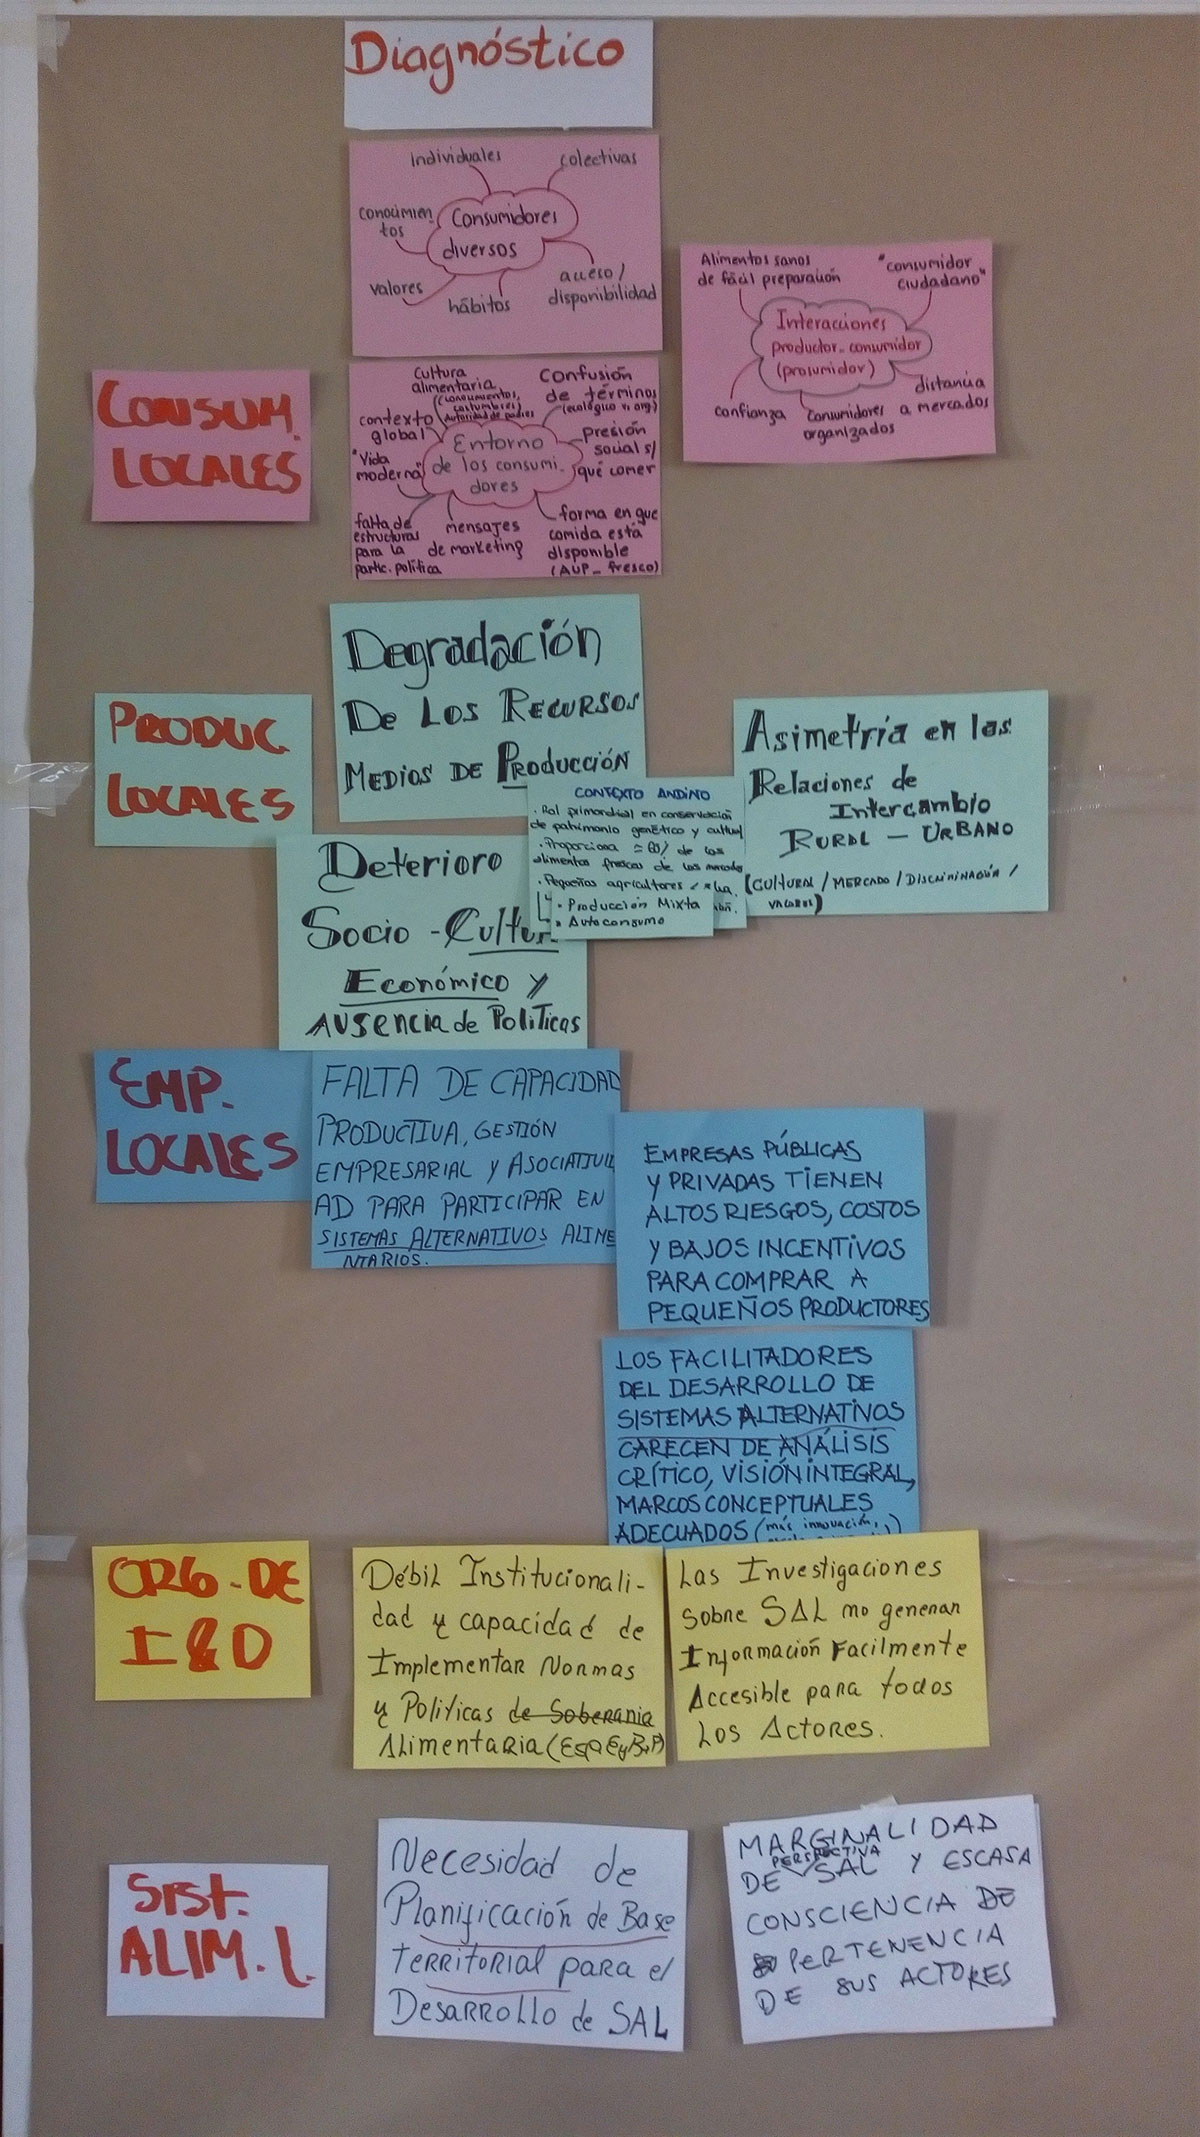 Diagnóstico
individuales
colectivas
conocimien-
tos
Consumidores
diversos
valores
hábitos
acceso/
disponibilidad
Alimentos sanos
de fácil preparación
"consumidor
ciudadano"
Interacciones
productor-consumidor
(prosumidor)
confianza
consumidores
organizados
distancia
a mercados
CONSUM.
LOCALES
cultura
alimentaria
(conocimientos,
costumbres)
Confusión
de términos
(ecológico vs org)
contexto
global
"Vida
moderna"
Entorno
de los consumi-
dores
presión
social s/
qué comer
falta de
estructuras
para la
partic. política
mensajes
de marketing
forma en que
comida está
disponible
(AUP - fresco)
PRODUC
LOCALES
Degradación
De Los Recursos
Medios de Producción
Asimetría en las
Relaciones de
Intercambio
Rural - Urbano
(CULTURAL / MERCADO / DISCRIMINACIÓN /
VALORES)
CONTEXTO ANDINO
· Rol primordial en conservación
de patrimonio genético y cultural
· Proporciona de los
alimentos frescos de los mercados
· Pequeños agricultores
· Producción Mixta
· Autoconsumo
Deterioro
Socio - Cultur
Económico y
Ausencia de Políticas
EMP.
LOCALES
FALTA DE CAPACIDAD
PRODUCTIVA, GESTIÓN
EMPRESARIAL Y ASOCIATIVID
AD PARA PARTICIPAR EN
SISTEMAS ALTERNATIVOS ALIME
NTARIOS.
EMPRESAS PÚBLICAS
Y PRIVADAS TIENEN
ALTOS RIESGOS, COSTOS
Y BAJOS INCENTIVOS
PARA COMPRAR A
PEQUEÑOS PRODUCTORES
LOS FACILITADORES
DEL DESARROLLO DE
SISTEMAS ALTERNATIVOS
CARECEN DE ANÁLISIS
CRÍTICO, VISIÓN INTEGRAL,
MARCOS CONCEPTUALES
ADECUADOS (más innovación,
ORG - DE
I & D
Débil Institucionali-
dad y capacidad de
Implementar Normas
y Políticas de Soberania
Alimentaria
Las Investigaciones
sobre SAL no generan
Información Facilmente
Accesible para todos
Los Actores.
SIST.
ALIM. L.
Necesidad de
Planificación de Base
Territorial para el
Desarrollo de SAL
MARGINALIDAD
PERSPECTIVA
DE SAL Y ESCASA
CONSCIENCIA DE
PERTENENCIA
DE SUS ACTORES